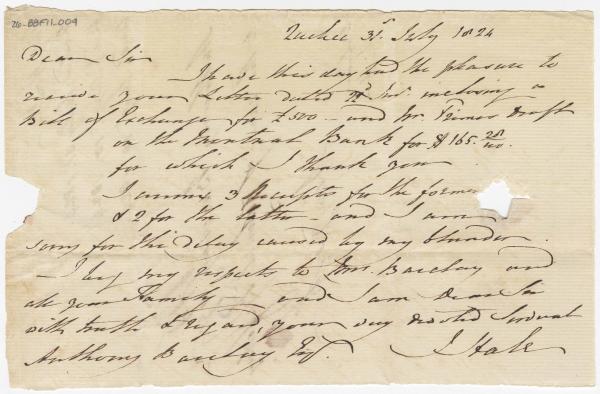 26-BBF11-009
Quebec 31st July 1824
Dear Sir
I have this day had the pleasure to
receive your Letter dated inclosing a
Bill of Exchange for £500 – and Mr. Draft
on the Montreal Bank for $165.
for which I thank you
I annex 3 Receipts for the former
& 2 for the latter – and I am
sorry for the delay caused by my blunder.
– I beg my respects to Mrs. Barclay and
all your Family – and I am Dear Sir
with truth & regard, your very devoted Servant
Anthony Barclay Esq. J Hale